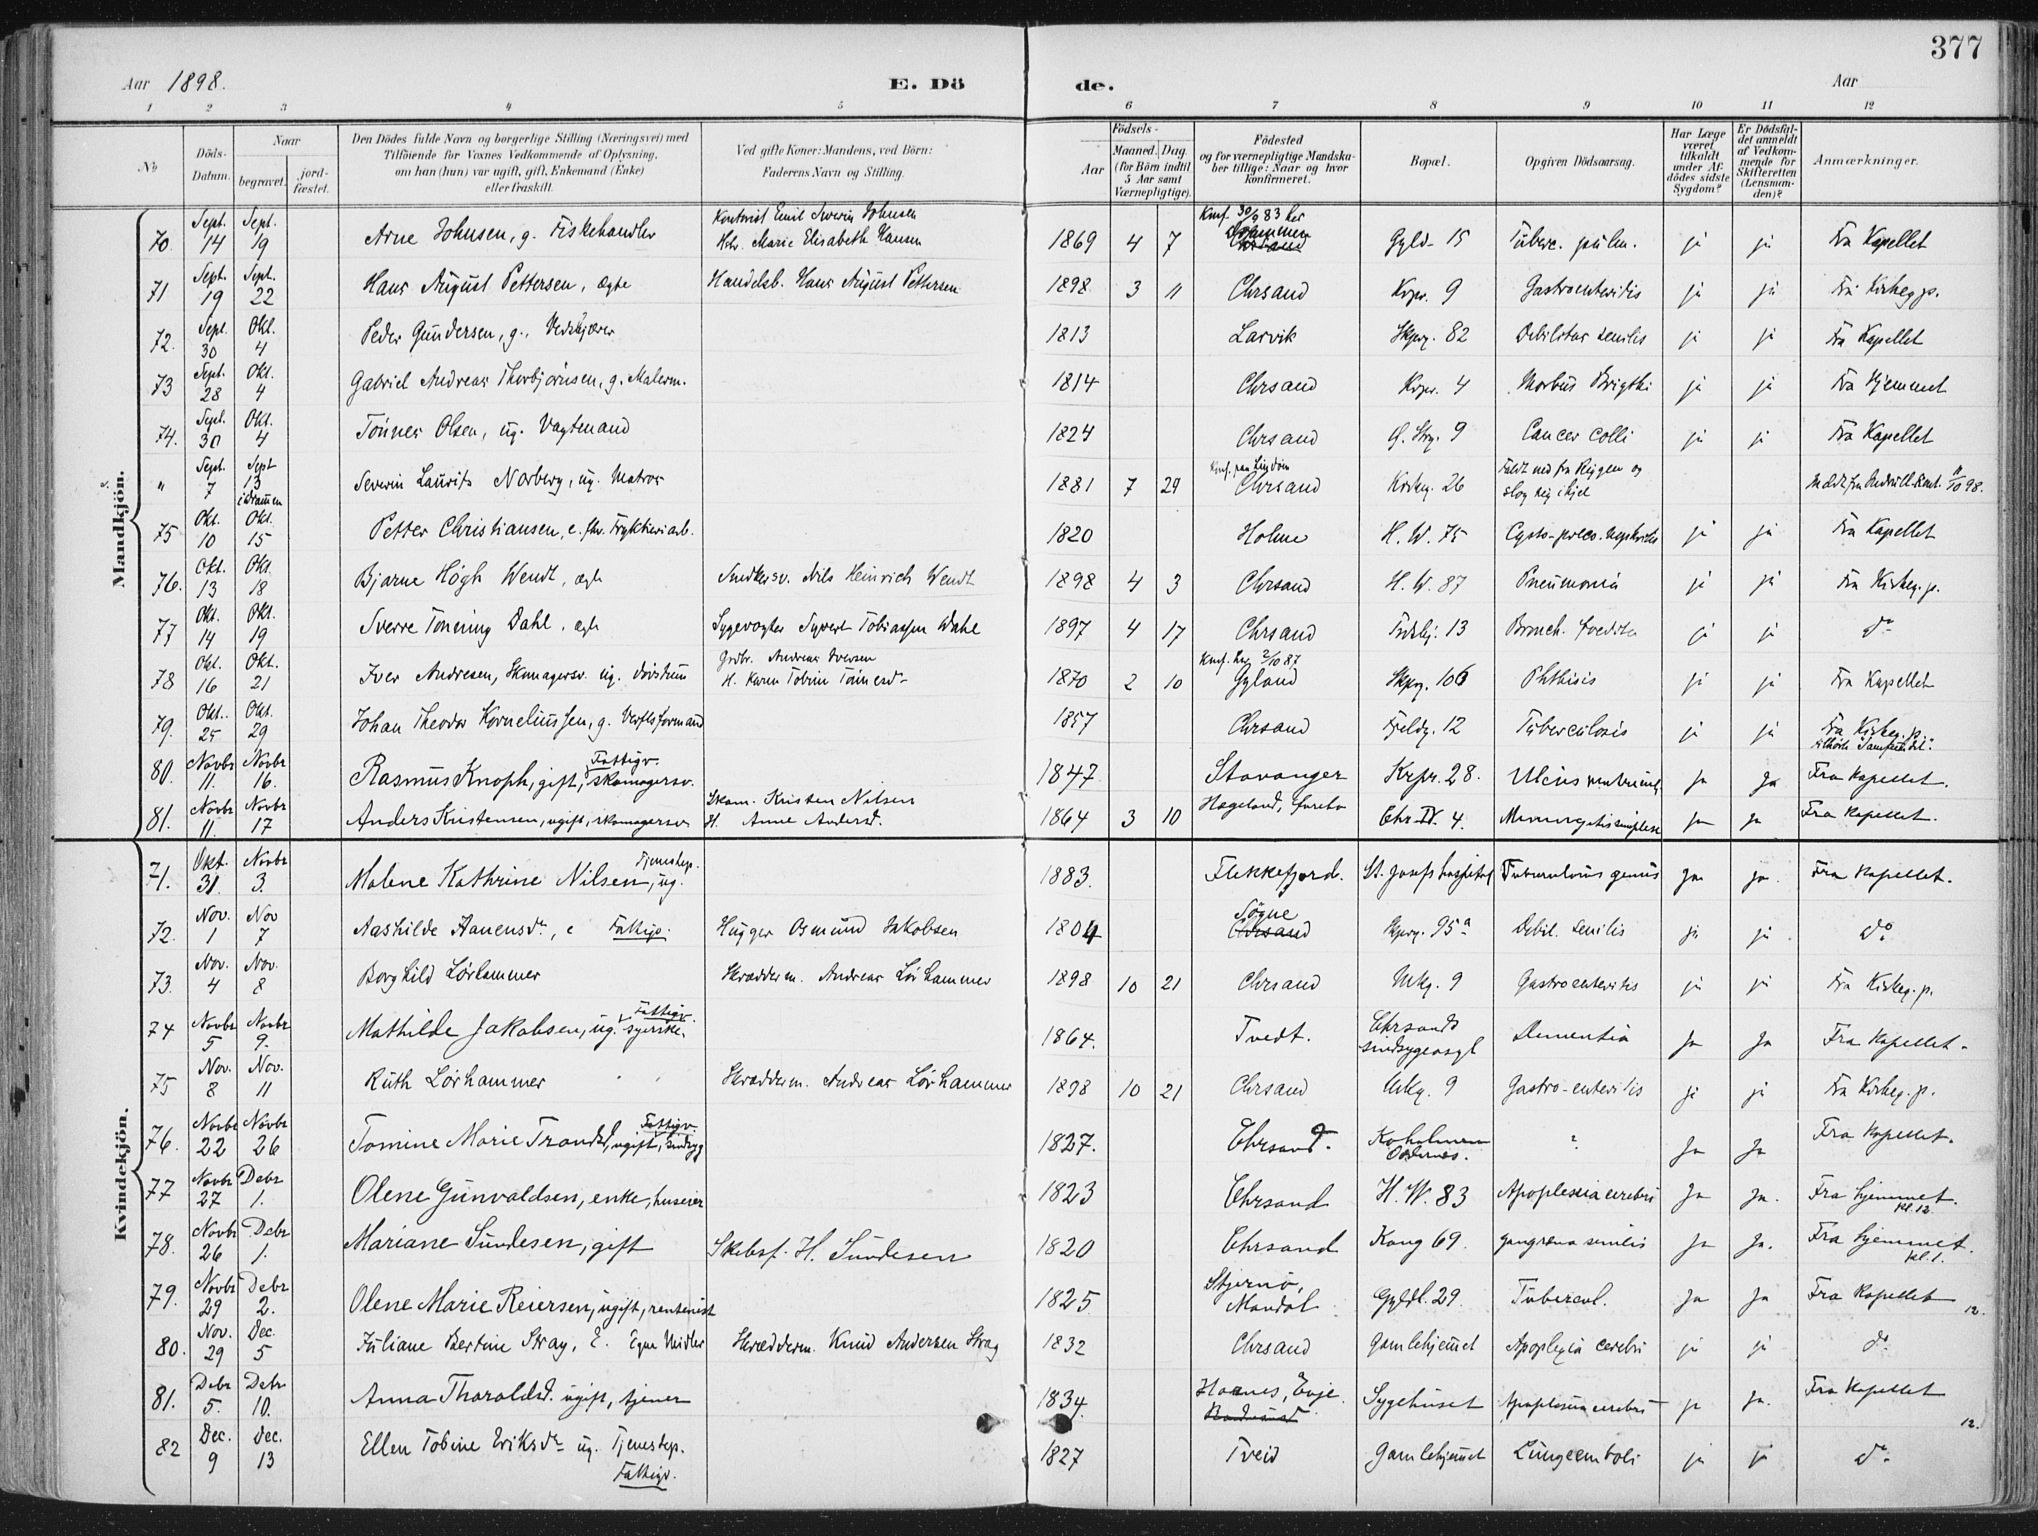 377
Aar 1898.
E. Dö
de.
Aar
1 2 3 4 5 6 7 8 9 10 11 12
No
Döds-Datum.
Naar
begravet.
jord-fæstet.
Den Dödes fulde Navn og borgerlige Stilling (Næringsvei) med
Tilföiende for Voxnes Vedkommende af Oplysning,
om han (hun) var ugift, gift, Enkemand (Enke)
eller fraskilt.
Ved gifte Koner: Mandens, ved Börn:
Faderens Navn og Stilling.
Födsels-
Aar
Maaned.
Dag.
(for Börn indtil
5 Aar samt
Værnepligtige).
Födested
og for værnepligtige Mandska-
ber tillige: Naar og hvor
konfirmeret.
Bopæl.
Opgiven Dödsaarsag.
Har Læge
været
tilkaldt
under Af-
dödes sidste
Sygdom?
Er Dödsfal-
det anmeldt
af Vedkom-
mende for
Skifteretten
(Lensman-
den)?
Anmærkninger.
Mandkjön.
70. Sept. 14 Sept. 19 Arne Johnsen, g. Fiskehandler Kontorist Emil Severin Johnsen
Marie Elisabeth Hansen 1869 4 7 Konf. 30/9 83 her Drammen Gyld. 15 Tuberc. pulm. ja ja Fra Kapellet
71 Sept. 19 Sept. 22 Hans August Pettersen, ægte Handelsb. Hans August Pettersen 1898 3 11 Chrsand Krpr. 9 Gastroenteritis ja ja Fra Kirkeg.p.
72. Sept. 30 Okt. 4 Peder Gundersen, g., Vedskjærer 1813 Larvik Skprg. 82 Debilitas senilis ja ja Fra Kapellet
73 Sept. 28 Okt. 4 Gabriel Andreas Thorbjörnsen, g. Malerm. 1814 Chrsand Krpr. 4 Morbus Brigthi ja ja Fra Hjemmet
74. Sept. 30 Okt. 4 Tönnes Olsen, ug. Vagtmand 1824 Chrsand Strg. 9 Cancer colli ja ja Fra Kapellet
" Sept. 7 Sept 13 i Drammen Severin Laurits Norberg, ug. Matros 1881 7 29 Chrsand Kirkeg. 26 Faldt ned fra Riggen og
slog sig ihjel 11/10 98.
75 Okt. 10 Okt. 15 Petter Christiansen, e. fhv. Trykkeriarb. 1820 Holme H. W. 75 ja ja Fra Kapellet
76. Okt. 13 Okt. 18 Bjarne Högh Wendt, ægte Snedkersv. Nils Heinrich Wendt 1898 4 3 Chrsand H. W. 87 Pneumonia ja ja Fra Kirkeg.p.
77 Okt. 14 Okt. 19 Sverre Tönning Dahl, ægte Sygevogter Syvert Tobiassen Dahl 1897 4 17 Chrsand 13 Bronch. foetida ja ja do
78 Okt. 16 Okt. 21 Iver Andresen, Skomagersv. ug. Grdbr. Andreas Iversen
H. Karen Tobine 1870 2 10 2/10 87 Gyland Skprg. 106 Phthisis ja ja Fra Kapellet
79. Okt. 25 Okt. 29 Johan Theodor Korneliussen, g. Verftsformand 1857 Chrsand Fjeldg. 12 Tuberculosis ja ja Fra Kirkeg.p.
80. Novbr 11. Novbr 16. Rasmus Knoph, gift, Fattigv. skomagersv. 1847 Stavanger Krpr. 28. Ulcus ventriculi ja ja Fra kapellet.
81. Novbr 11. Novbr 17 Anders Kristensen, ugift, skomagersv Skom. Kristen Nilsen
H. Anne Andersd. 1864 3 10 Hægeland, Chr. IV. 4. ja ja Fra kapellet.
Kvindekjön.
71. Okt. 31. Novbr 3. Malene Kathrine Nilsen, ug. Tjenestep. 1883. Flekkefjord. St. Josefs hospital Tuberculosis genus ja ja. Fra kapellet.
72. Nov. 1 Nov 7 Aashilde Aanensdr, e Fattigv. Hugger Osmund Jakobsen 1804 Søgne Chrsand Skprg. 95a Debil. senilis ja ja do
73. Nov. 4 Nov. 8 Borghild Lörhammer Skrædderm. Andreas Lörhammer 1898 10 21 Chrsand Mkg. 9 Gastroenteritis ja ja Fra Kirkeg.p.
74 Novbr 5 Novbr 9. Mathilde Jakobsen, ug. Fattigv. syerske. 1864. Tvedt. Chrsands
sindsygeasyl Dementia ja ja Fra Kapellet.
75 Nov. 8 Nov. 11 Ruth Lörhammer Skrædderm. Andreas Lörhammer 1898 10 21 Chrsand Mkg. 9 Gastro-enteritis ja ja Fra Kirkeg.p.
76. Novbr 22 Novbr 26 Tomine Marie Trondsd, ugift, Fattigv. sindsyg 1827. Chrsand. Koholmen
Oddernes. ? ja ja Fra Kapellet.
77 Novbr 27 Debr 1. Olene Gunvaldsen, enke, huseier 1823 Chrsand H. W. 83 Apoplexia cerebri ja ja. Fra hjemmet.
kl. 12.
78. Novbr 26 Debr 1. Mariane Sundesen, gift Skibsf. H. Sundesen 1820 Chrsand Kong 69. gangræna senilis ja ja. Fra hjemmet.
kl. 1.
79. Novbr 29 Debr 2. Olene Marie Reiersen, ugift, rentenist 1825. Stjernö,
Mandal Gyldl. 29. Tubercul. ja ja Fra Kapellet 12.
80. Nov. 29 Dec. 5 Juliane Bertine Stray, E. Egne Midler Skrædderm. Knud Andersen Stray 1832 Chrsand Gamlehjemet Apoplexia cerebri ja ja do
81. Debr 5. Debr 10. Anna Thoroldsd. ugift, tjener 1834. Hornes, Evje Sygehuset Apoplexia cerebri ja ja. Fra kapellet
12.
82 Dec. 9 Dec. 13 Ellen Tobine Eriksdr ug. Tjenestep.
Fattigv. 1827 Tveid Gamlehjemet Lungeemboli ja ja do